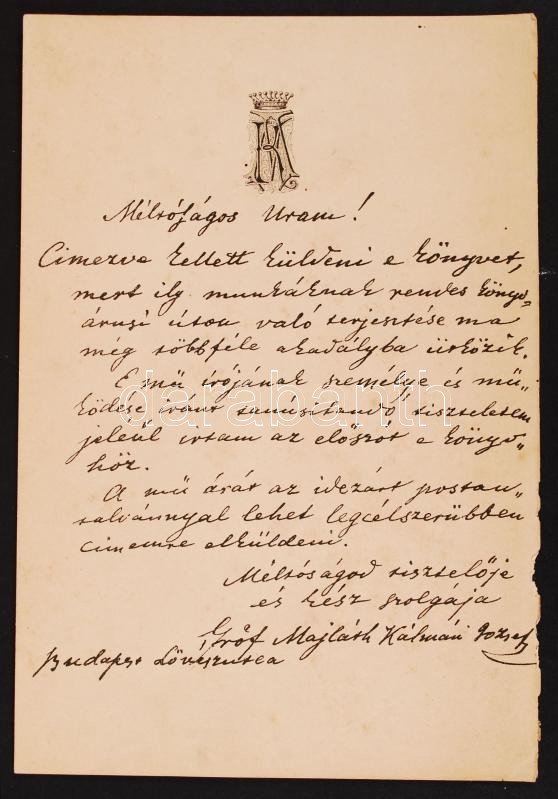 Méltóságos Uram!
Cimezve kellett küldeni e könyvet,
mert ily munkáknak rendes könyv„
árusi úton való terjesztése ma
még többféle akadályba ütközik.
E mű írójának személye és mű„
ködése iránt tanusitandó tiszteletem
jeléül irtam az előszót e könyv„
höz.
A mű árát az idezárt postau„
talvánnyal lehet legcélszerübben
cimemre elküldeni.
Méltóságod tisztelője
és kész szolgája
Gróf Majláth Kálmán József
Budapest Lövészutca
darabanth